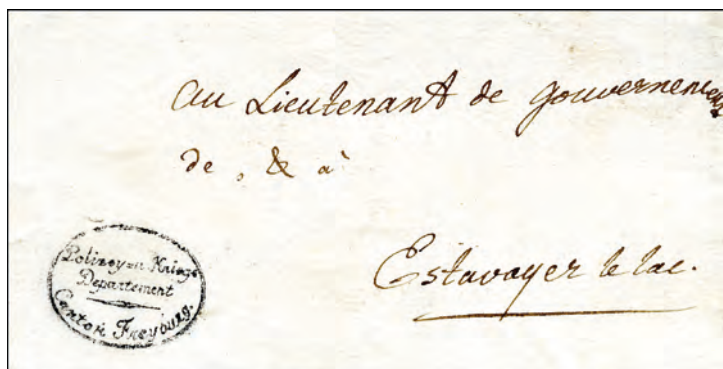 Au Lieutenant de gouvernement
de, & à
Estavayer le lac.
Polizey u Kriegs
Departement
Canton Freyburg.